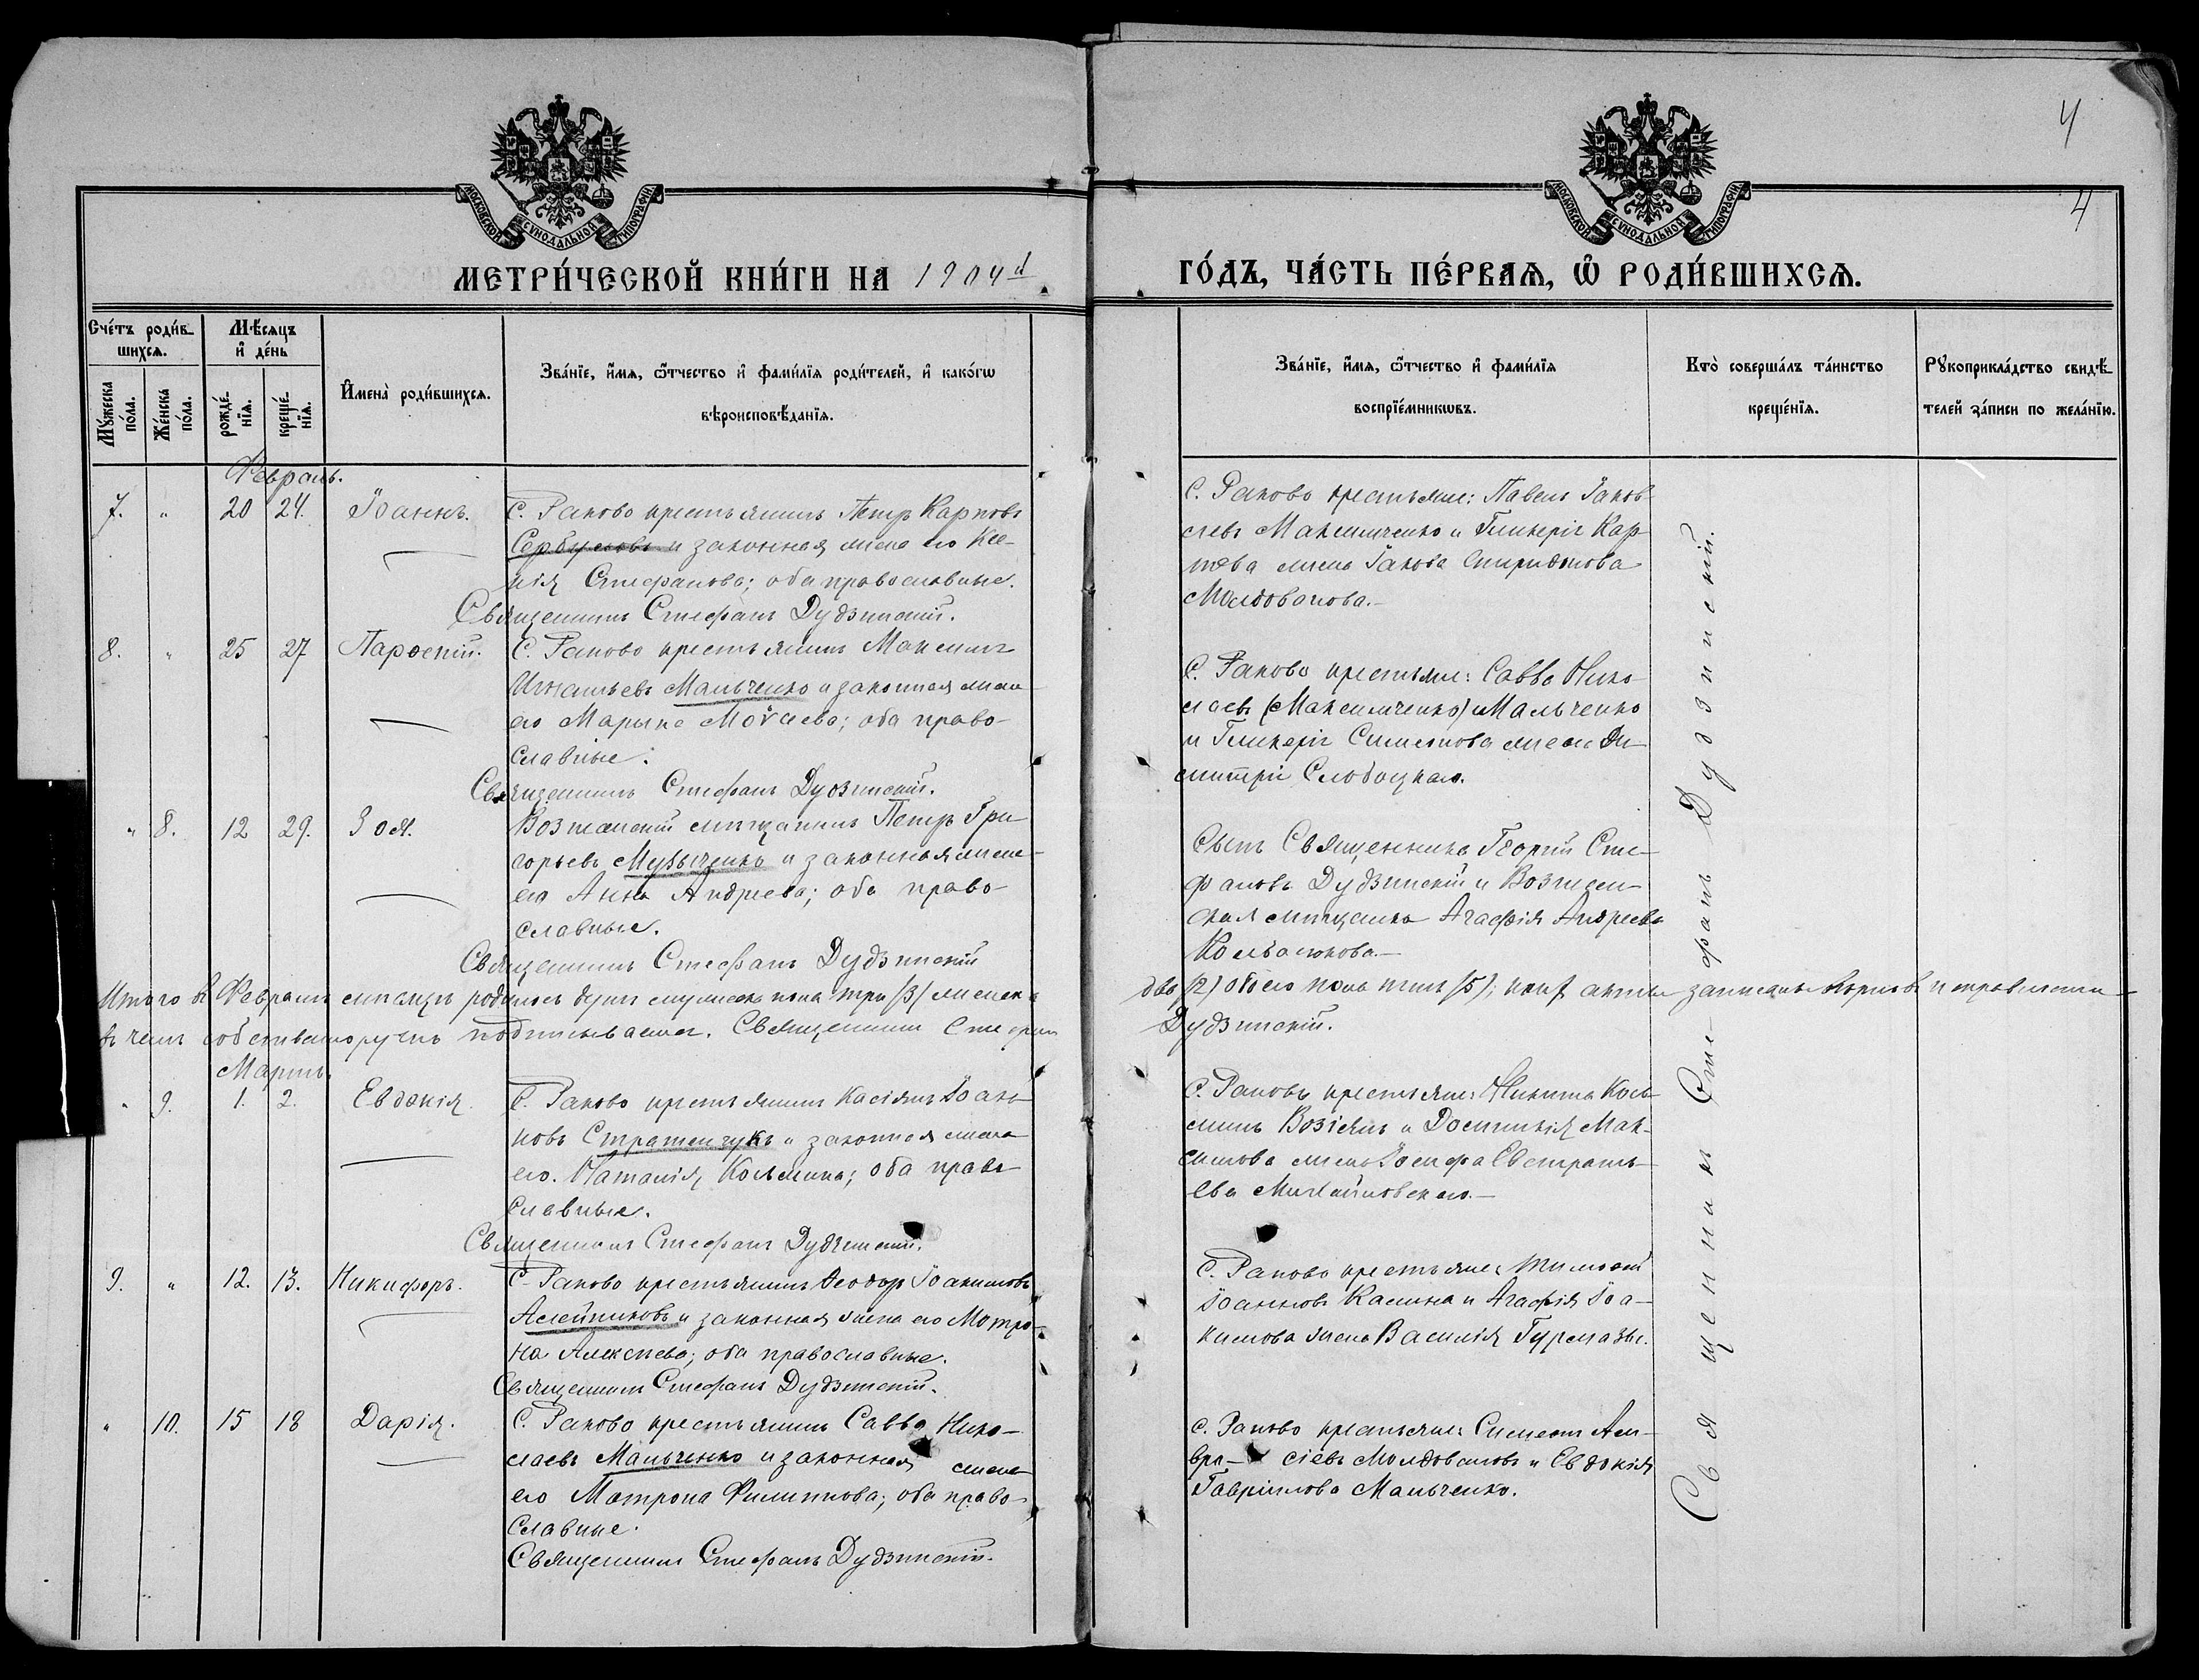 4
4
МОСКОВСКОЙ СѴНОДАЛЬНОЙ ТИПОГРАФІИ
МОСКОВСКОЙ СѴНОДАЛЬНОЙ ТИПОГРАФІИ
МЕТРИ́ЧЕСКОЙ КНИ́ГИ НА 1904й
ГО́ДЪ, ЧА́СТЬ ПЕ́РВАѦ, Ѿ РОДИ́ВШИХСѦ.
Сче́тъ роди́в-
шихсѧ.
Мѣ́сяцъ
и҆ де́нь
Мꙋ́жеска по́ла.
Же́нска по́ла.
рожде́-
нїѧ.
креще́-
нїѧ.
И҆мена̀ роди́вшихсѧ.
Зва́нїе, и҆́мѧ, ѻ҆́тчество и҆ фами́лїѧ роди́телей, и҆ како́гѡ
вѣроисповѣ́данїѧ.
Зва́нїе, и҆́мѧ, ѻ҆́тчество и҆ фами́лїѧ
воспрїе́мникѡвъ.
Кто̀ соверша́лъ та́инство
креще́нїѧ.
Рꙋкоприкла́дство свидѣ́-
телей за́писи по жела́нїю.
Февраль.
7. " 20 24. Іоаннъ.
С. Раково крестьянинъ Петръ Карповъ
Сербуловъ и законная жена его Ксе-
нія Стефанова; оба православные.
Священникъ Стефанъ Дудзинскій.
С. Раково крестьяне: Павелъ Іаков-
левъ Максимченко и Гликерія Кар-
пова жена Іакова Спиридонова
Молдованова.-
8. " 25 27 Парѳеній.
С. Раково крестьянинъ Максимъ
Игнатьевъ Мальченко и законная жена
его Марина Моѵсеева; оба право-
славные.
Священникъ Стефанъ Дудзинскій.
С. Раково крестьяне: Савва Нико-
лаевъ (Максимченко) Мальченко
и Гликерія Симеонова жена Ди-
митрія Слободскаго.
" 8. 12 29. Зоя.
Вознесенскій мѣщанинъ Петръ Гри-
горьевъ Музыченко и законная жена
его Анна Андреева; оба право-
славные.
Священникъ Стефанъ Дудзинскій
Сынъ Священника Георгій Сте-
фановъ Дудзинскій и Вознесен-
ская мѣщанка Агафія Андреева
Колбасюкова.-
Итого въ Февралѣ мѣсяцѣ родилось душъ мужеска пола три (3) женска
два (2) обоего пола пять (5); коихъ акты записаны вѣрно и правильно
въ чемъ собственноручно подписываемся. Священникъ Стефанъ
Дудзинскій.
Мартъ.
" 9. 1. 2. Евдокія.
С. Раково крестьянинъ Касіянъ Іоан-
новъ Стратейчукъ и законная жена
его Наталія Козьмина; оба право-
славные.
Священникъ Стефанъ Дудзинскій.
С. Раково крестьяне: Никита Козь-
минъ Возіянъ и Домникія Мак-
симова жена Іосифа Евстрать-
ева Михайловскаго.-
9. " 12. 13. Никифоръ.
С. Раково крестьянинъ Ѳеодоръ Іоакимовъ
Алейниковъ и законная жена его Матро-
на Алексѣева; оба православные.
Священникъ Стефанъ Дудзинскій.
С. Раково крестьяне: Тимоѳей
Іоанновъ Калина и Агафія Іоа-
кимова жена Василія Гурмазы.
" 10. 15 18 Дарія.
С. Раково крестьянинъ Савва Нико-
лаевъ Мальченко и законная жена
его Матрона Филиппова; оба право-
славные.
Священникъ Стефанъ Дудзинскій.
С. Раково крестьяне: Симеонъ Ам-
вро- сіевъ Молдовановъ и Евдокія
Гавріилова Мальченко.
Священникъ Стефанъ Дудзинскій.